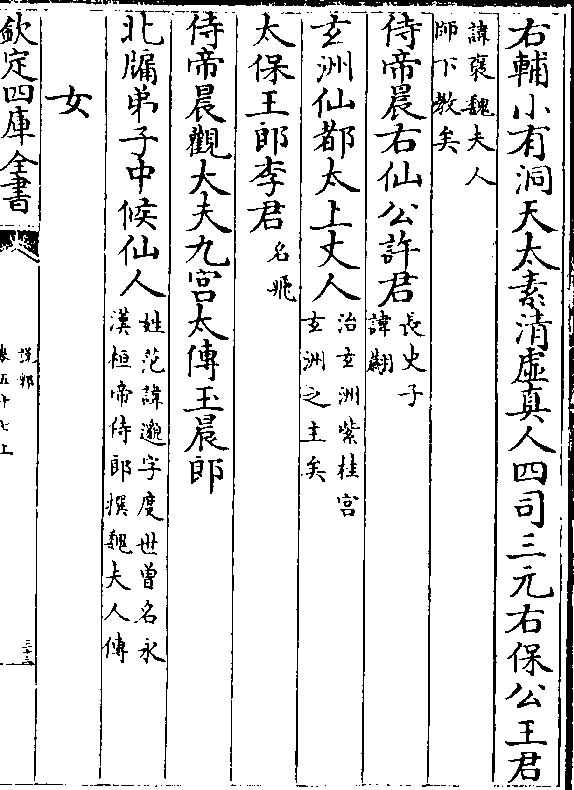 右輔小有洞天太素清虛真人四司三元右保公王君
諱褒魏夫人
師下教矣
侍帝晨右仙公許君
長史子
諱翽
玄洲仙都太上丈人
治玄洲紫桂宮
玄洲之主矣
太保玉郎李君
名飛
侍帝晨觀大夫九宮太傅玉晨郎
北牖弟子中候仙人
姓范諱邈字度世曾名永
漢桓帝侍郎撰魏夫人傳
女
欽定四庫全書
說郛
卷五十七上